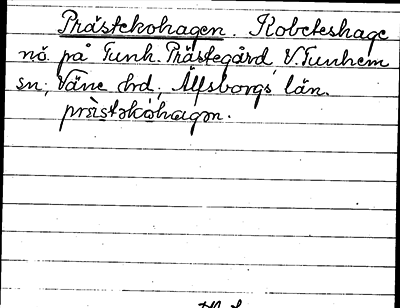 Prästekohagen. Kobeteshage
nö. på Tunh. Prästegård, V. Tunhem
sn, Väne hrd, Älfsborgs län.